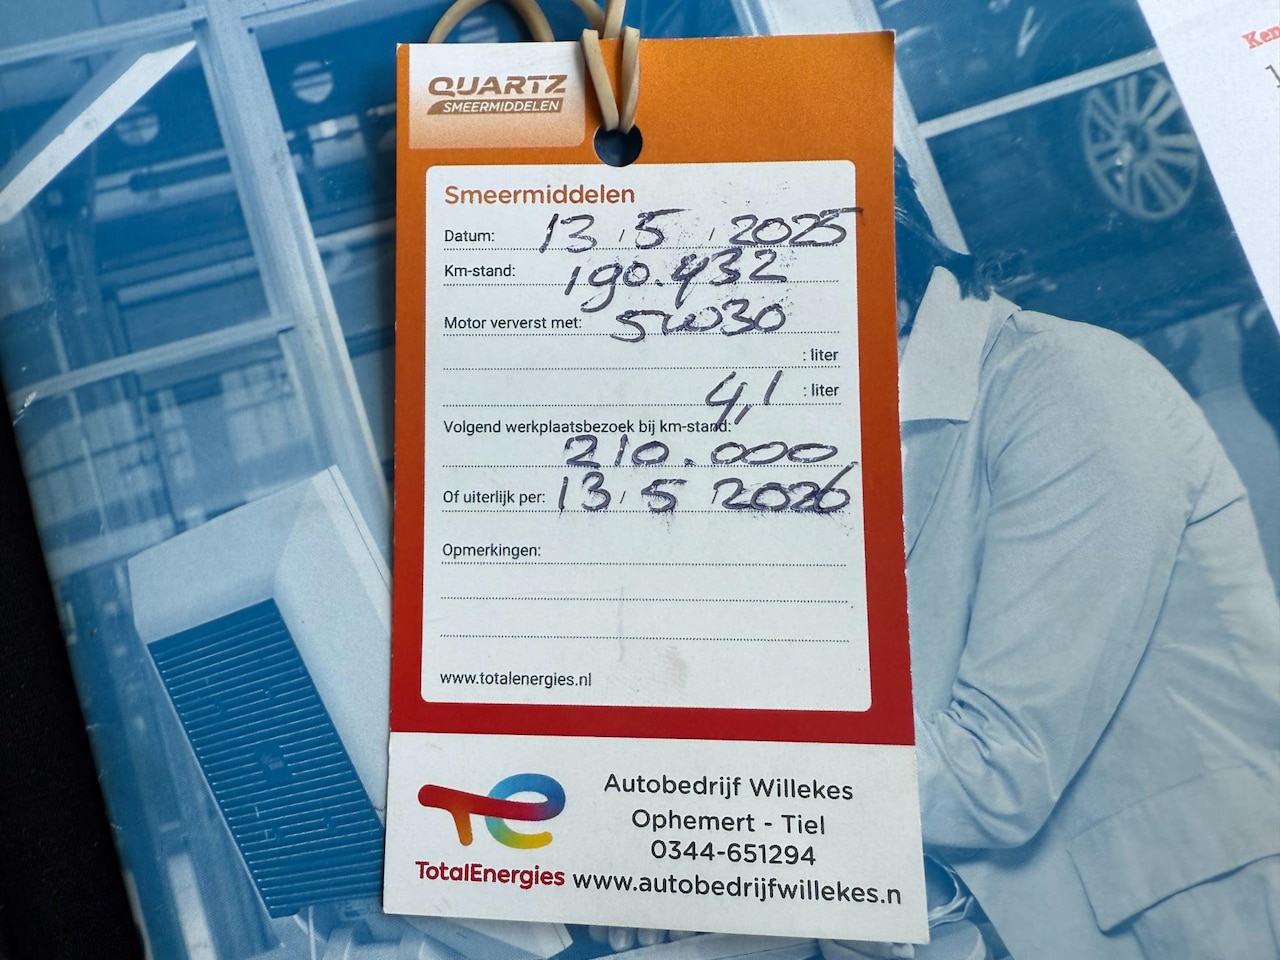 QUARTZ
SMEERMIDDELEN
Smeermiddelen
Datum: 13 / 5 / 2025
Km-stand: 190.432
Motor ververst met: 5W30
: liter
4,1 : liter
Volgend werkplaatsbezoek bij km-stand:
210.000
Of uiterlijk per: 13 / 5 / 2026
Opmerkingen:
www.totalenergies.nl
Autobedrijf Willekes
Ophemert - Tiel
0344-651294
TotalEnergies www.autobedrijfwillekes.n